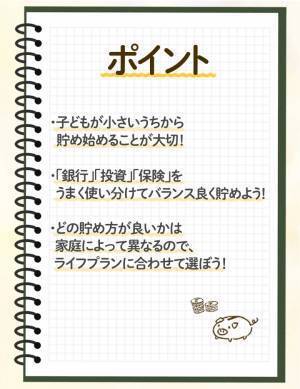 ポイント
・子どもが小さいうちから
貯め始めることが大切！
・「銀行」「投資」「保険」を
うまく使い分けてバランス良く貯めよう！
・どの貯め方が良いかは
家庭によって異なるので、
ライフプランに合わせて選ぼう！